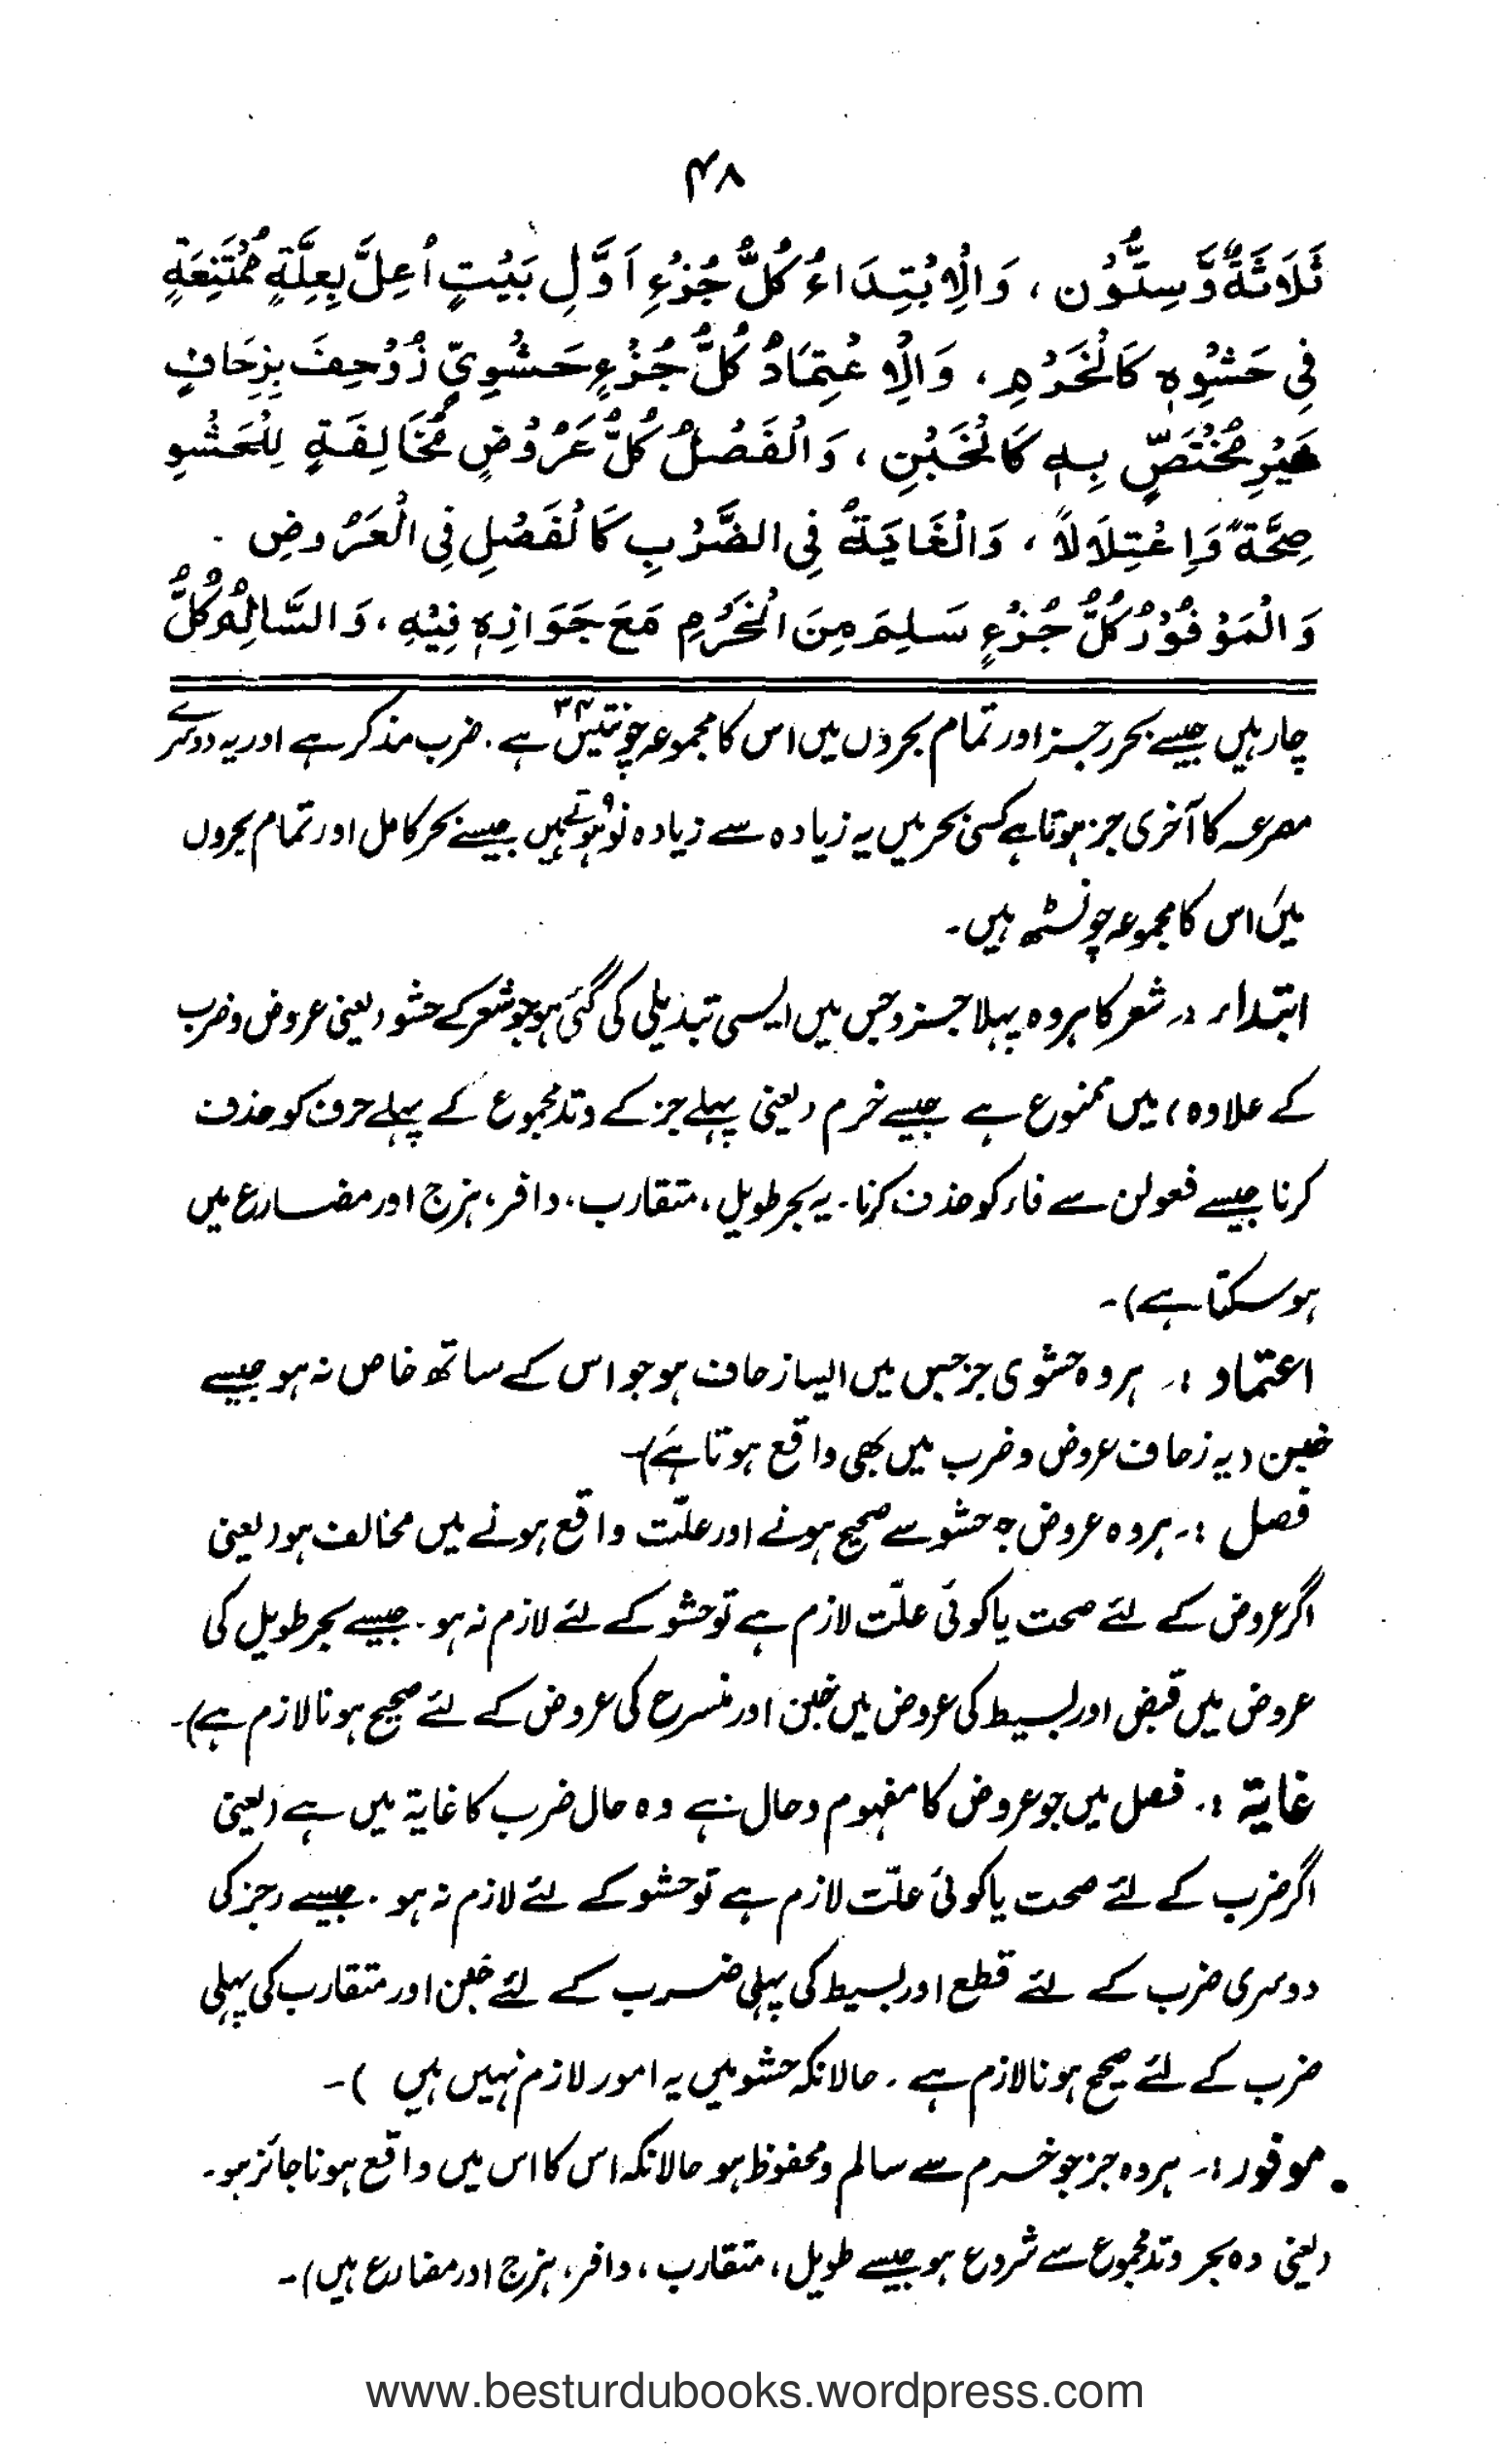 ۴۸
ثَلَاثَةٌ وَّسِتُّوْن ، وَالْاِبْتِدَاءُ كُلُّ جُزْءِ اَوَّلِ بَيْتٍ اُعِلَّ بِعِلَّةٍ مُّمْتَنِعَةٍ
فِي حَشْوِهٖ كَالْخَرْمِ ، وَالْاِعْتِمَادُ كُلُّ جُزْءٍ حَشْوِيٍّ زُوْحِفَ بِزِحَافٍ
غَيْرِ مُخْتَصٍّ بِهٖ كَالْخَبْنِ ، وَالْفَصْلُ كُلُّ عَرُوْضٍ مُّخَالِفَةٍ لِلْحَشْوِ
صِحَّةً وَّاِعْتِلَالاً ، وَالْغَايَةُ فِي الضَّرْبِ كَالْفَصْلِ فِي الْعَرُوضِ .
وَالْمَوْفُوْرُ كُلُّ جُزْءٍ سَلِمَ مِنَ الْخَرْمِ مَعَ جَوَازِهٖ فِيْهِ ، وَالسَّالِمُ كُلُّ
چار ہیں جیسے بحر رجسز اور تمام بحروں میں اس کا مجموعہ چونتیس۳۴ ہے . ضرب مذکر ہے اور یہ دوسرے
مصرعہ کا آخری جز ہوتا ہے کسی بحر میں یہ زیادہ سے زیادہ نو۹ ہوتے ہیں جیسے بحر کامل اور تمام بحروں
میں اس کا مجموعہ چونسٹھ ہیں۔
ابتداء :۔ شعر کا ہر وہ پہلا جسزوجس میں ایسی تبدیلی کی گئی ہو جو شعر کے حشو (یعنی عروض و ضرب
کے علاوہ) میں ممنوع ہے جیسے خرم (یعنی پہلے جز کے وتد مجموع کے پہلے حرف کو حذف
کرنا جیسے فعولن سے فاء کو حذف کرنا ۔ یہ بحر طویل ، متقارب ، وافر ، ہزج اور مضارع میں
ہو سکتا ہے)۔
اعتماد :۔ ہر وہ حشوی جز جس میں ایسا زحاف ہو جو اس کے ساتھ خاص نہ ہو جیسے
خبن (یہ زحاف عروض و ضرب میں بھی واقع ہوتا ہے)۔
فصل :۔ ہر وہ عروض جو حشو سے صحیح ہونے اور علّت واقع ہونے میں مخالف ہو (یعنی
اگر عروض کے لئے صحت یا کوئی علّت لازم ہے تو حشو کے لئے لازم نہ ہو ۔ جیسے بحر طویل کی
عروض میں قبض اور بسیط کی عروض میں خبن اور منسرح کی عروض کے لئے صحیح ہونا لازم ہے)۔
غایۃ :۔ فصل میں جو عروض کا مفہوم و حال ہے وہ حال ضرب کا غایۃ میں ہے (یعنی
اگر ضرب کے لئے صحت یا کوئی علّت لازم ہے تو حشو کے لئے لازم نہ ہو ۔ جیسے رجز کی
دوسری ضرب کے لئے قطع اور بسیط کی پہلی ضرب کے لئے خبن اور متقارب کی پہلی
ضرب کے لئے صحیح ہونا لازم ہے . حالانکہ حشو میں یہ امور لازم نہیں ہیں )۔
. موفور :۔ ہر وہ جز جو خرم سے سالم و محفوظ ہو حالانکہ اس کا اس میں واقع ہونا جائز ہو ۔
(یعنی وہ بحر وتد مجموع سے شروع ہو جیسے طویل ، متقارب ، وافر ، ہزج اور مضارع ہیں)۔
www.besturdubooks.wordpress.com